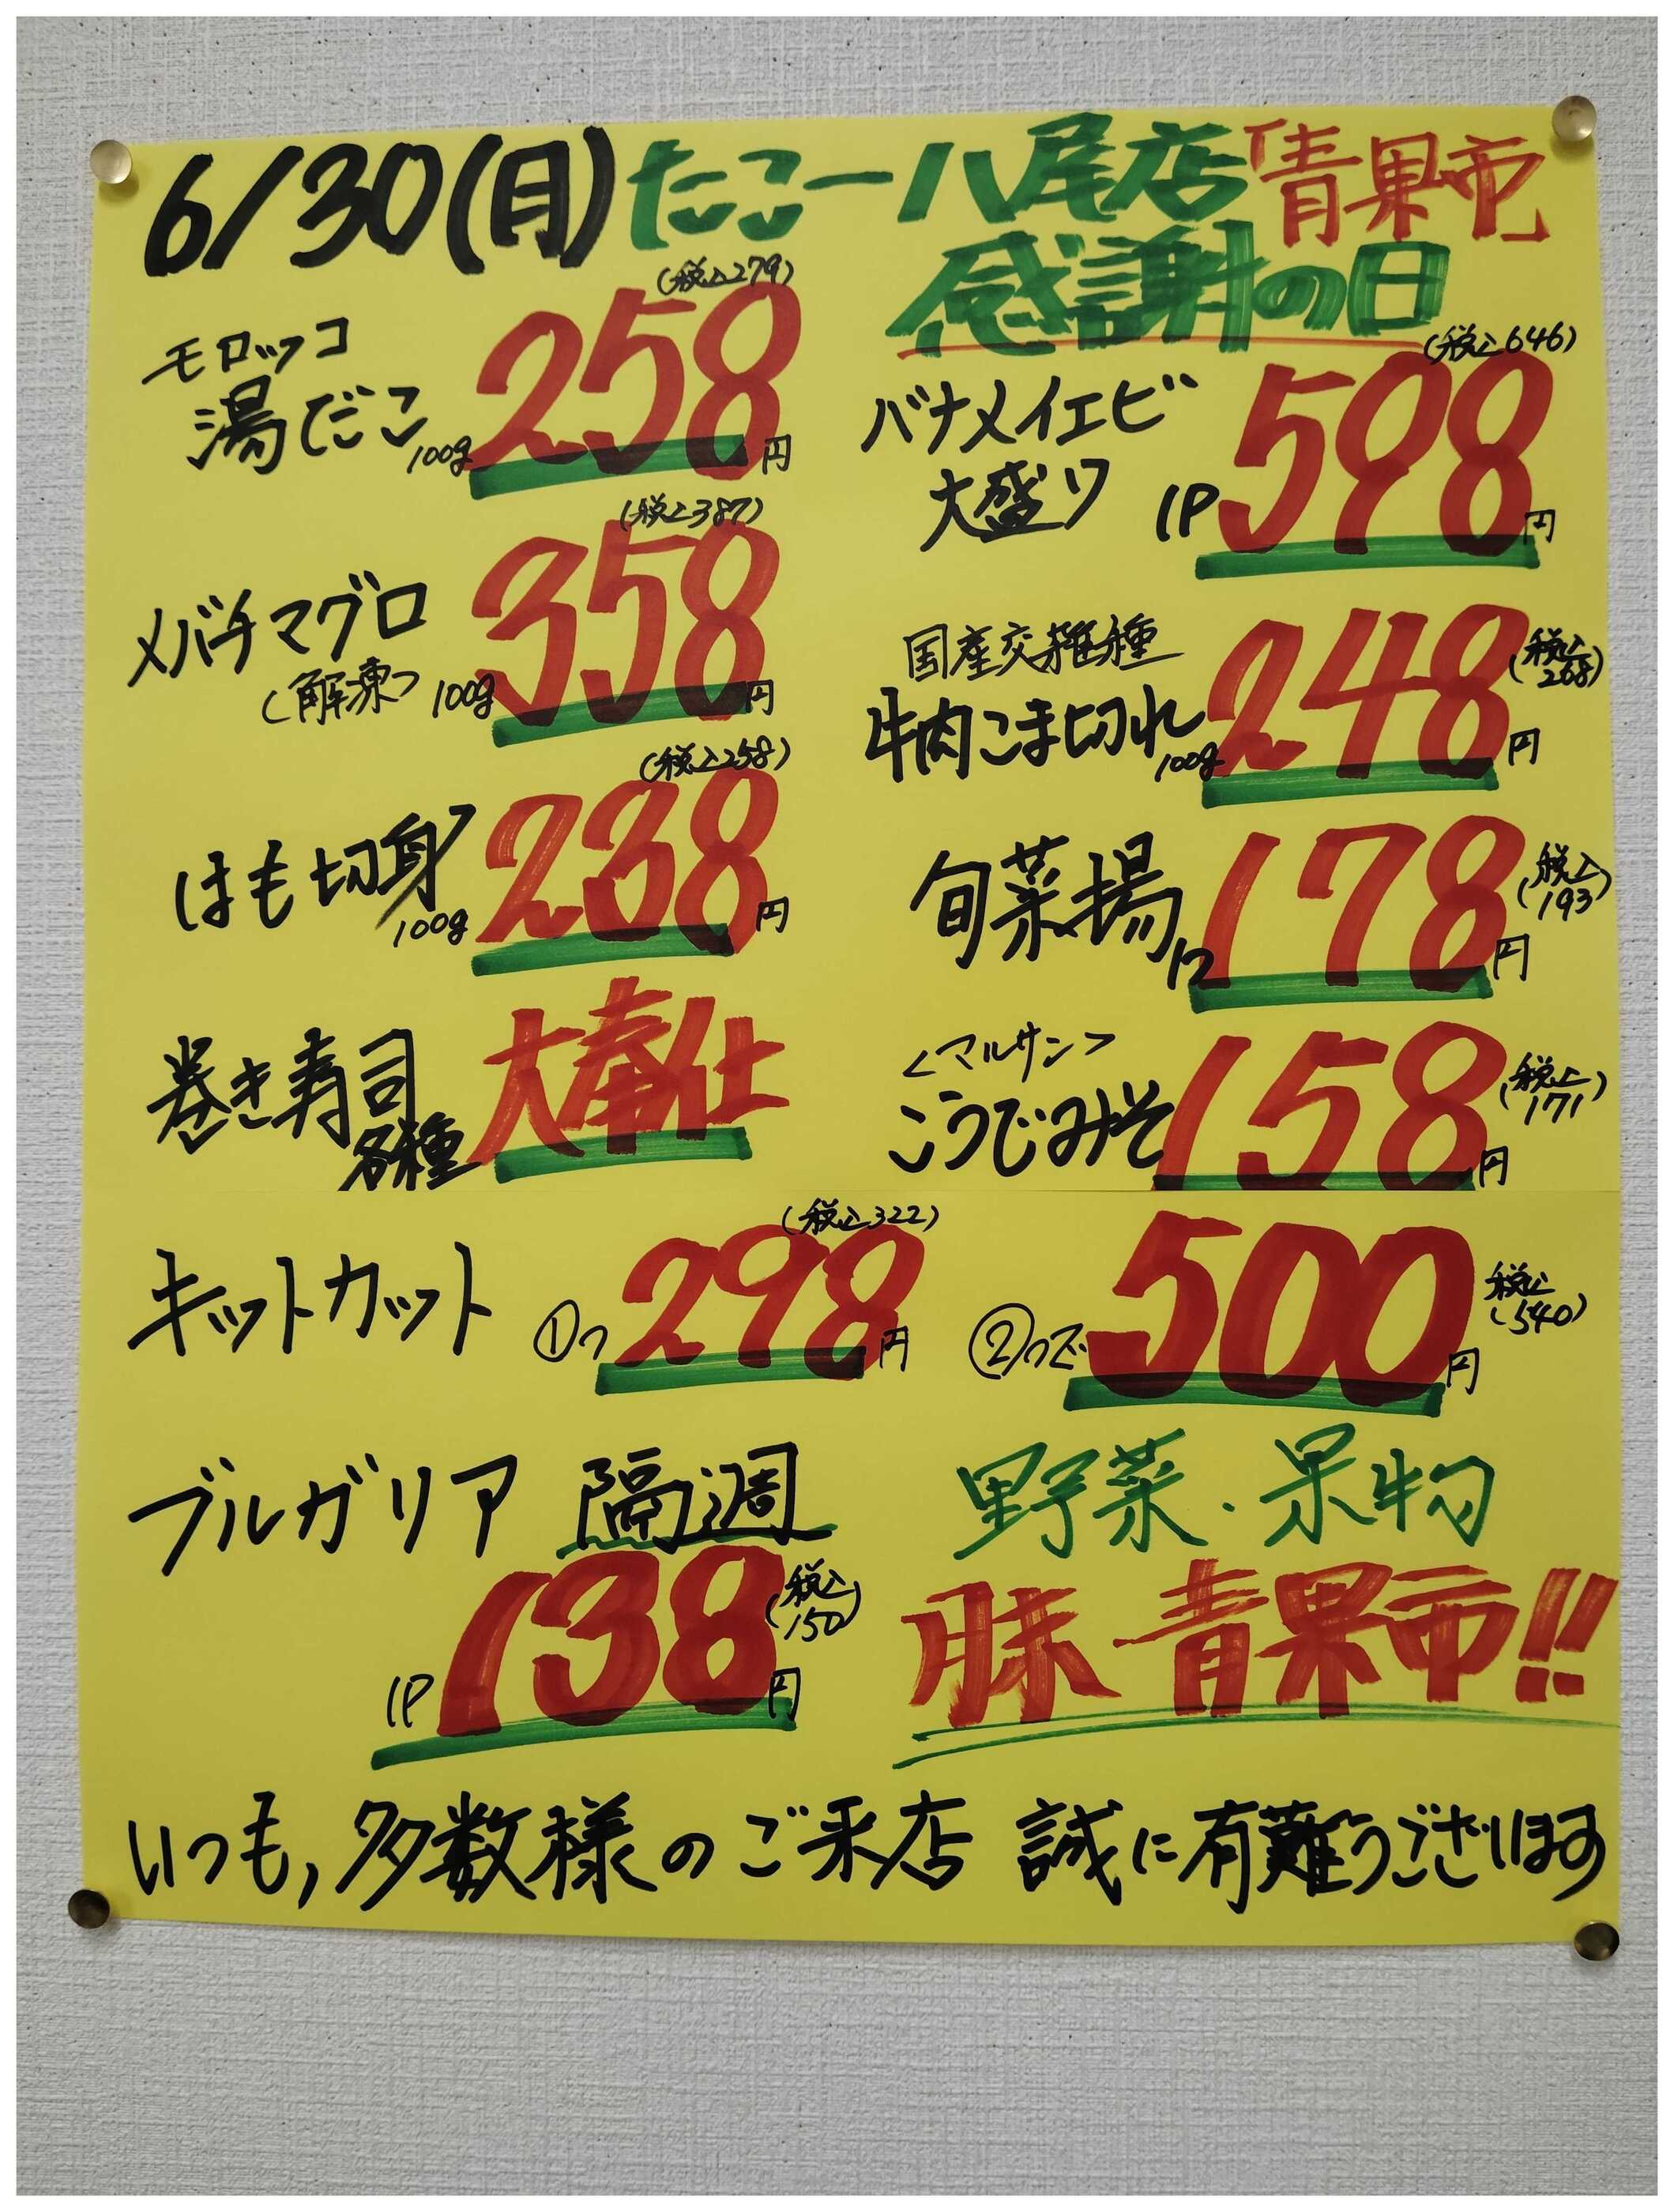 6/30(月) たこ一 八尾店「青果市」
感謝の日
モロッコ
湯だこ 100g 258円 (税込279)
バナメイエビ
大盛り 1P 598円 (税込646)
メバチマグロ
(解凍) 100g 358円 (税込387)
国産交雑種
牛肉こま切れ 100g 248円 (税込268)
はも切身 100g 238円 (税込258)
旬菜揚 1つ 178円 (税込193)
巻き寿司
各種 大奉仕
<マルサン>
こうじみそ 158円 (税込171)
キットカット ①つ 298円 (税込322) ②つで 500円 (税込540)
ブルガリア 隔週
1P 138円 (税込150)
野菜・果物
豚 青果市!!
いつも,多数様のご来店 誠に有難うございます